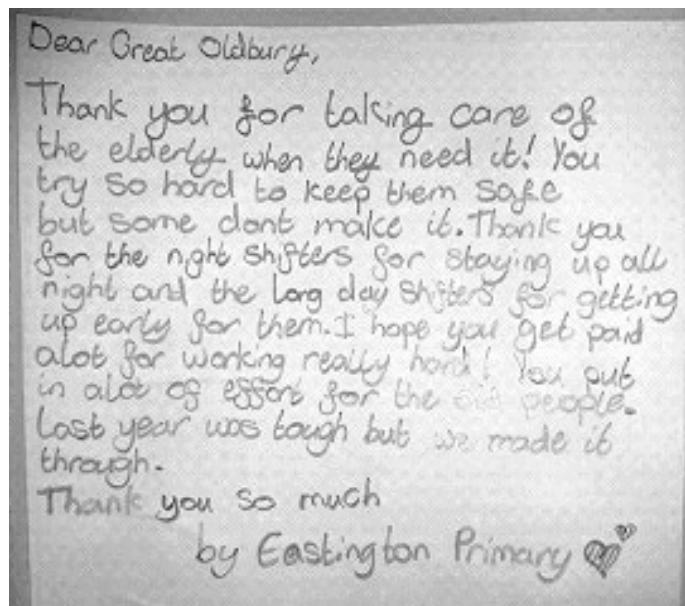 Dear Great Oldbury,
Thank you for taking care of
the elderly when they need it! You
try so hard to keep them safe
but some dont make it. Thank you
for the night shifters for staying up all
night and the long day shifters for getting
up early for them. I hope you get paid
alot for working really hard! You put
in alot of effort for the old people.
Last year was tough but we made it
through.
Thank you so much
by Eastington Primary